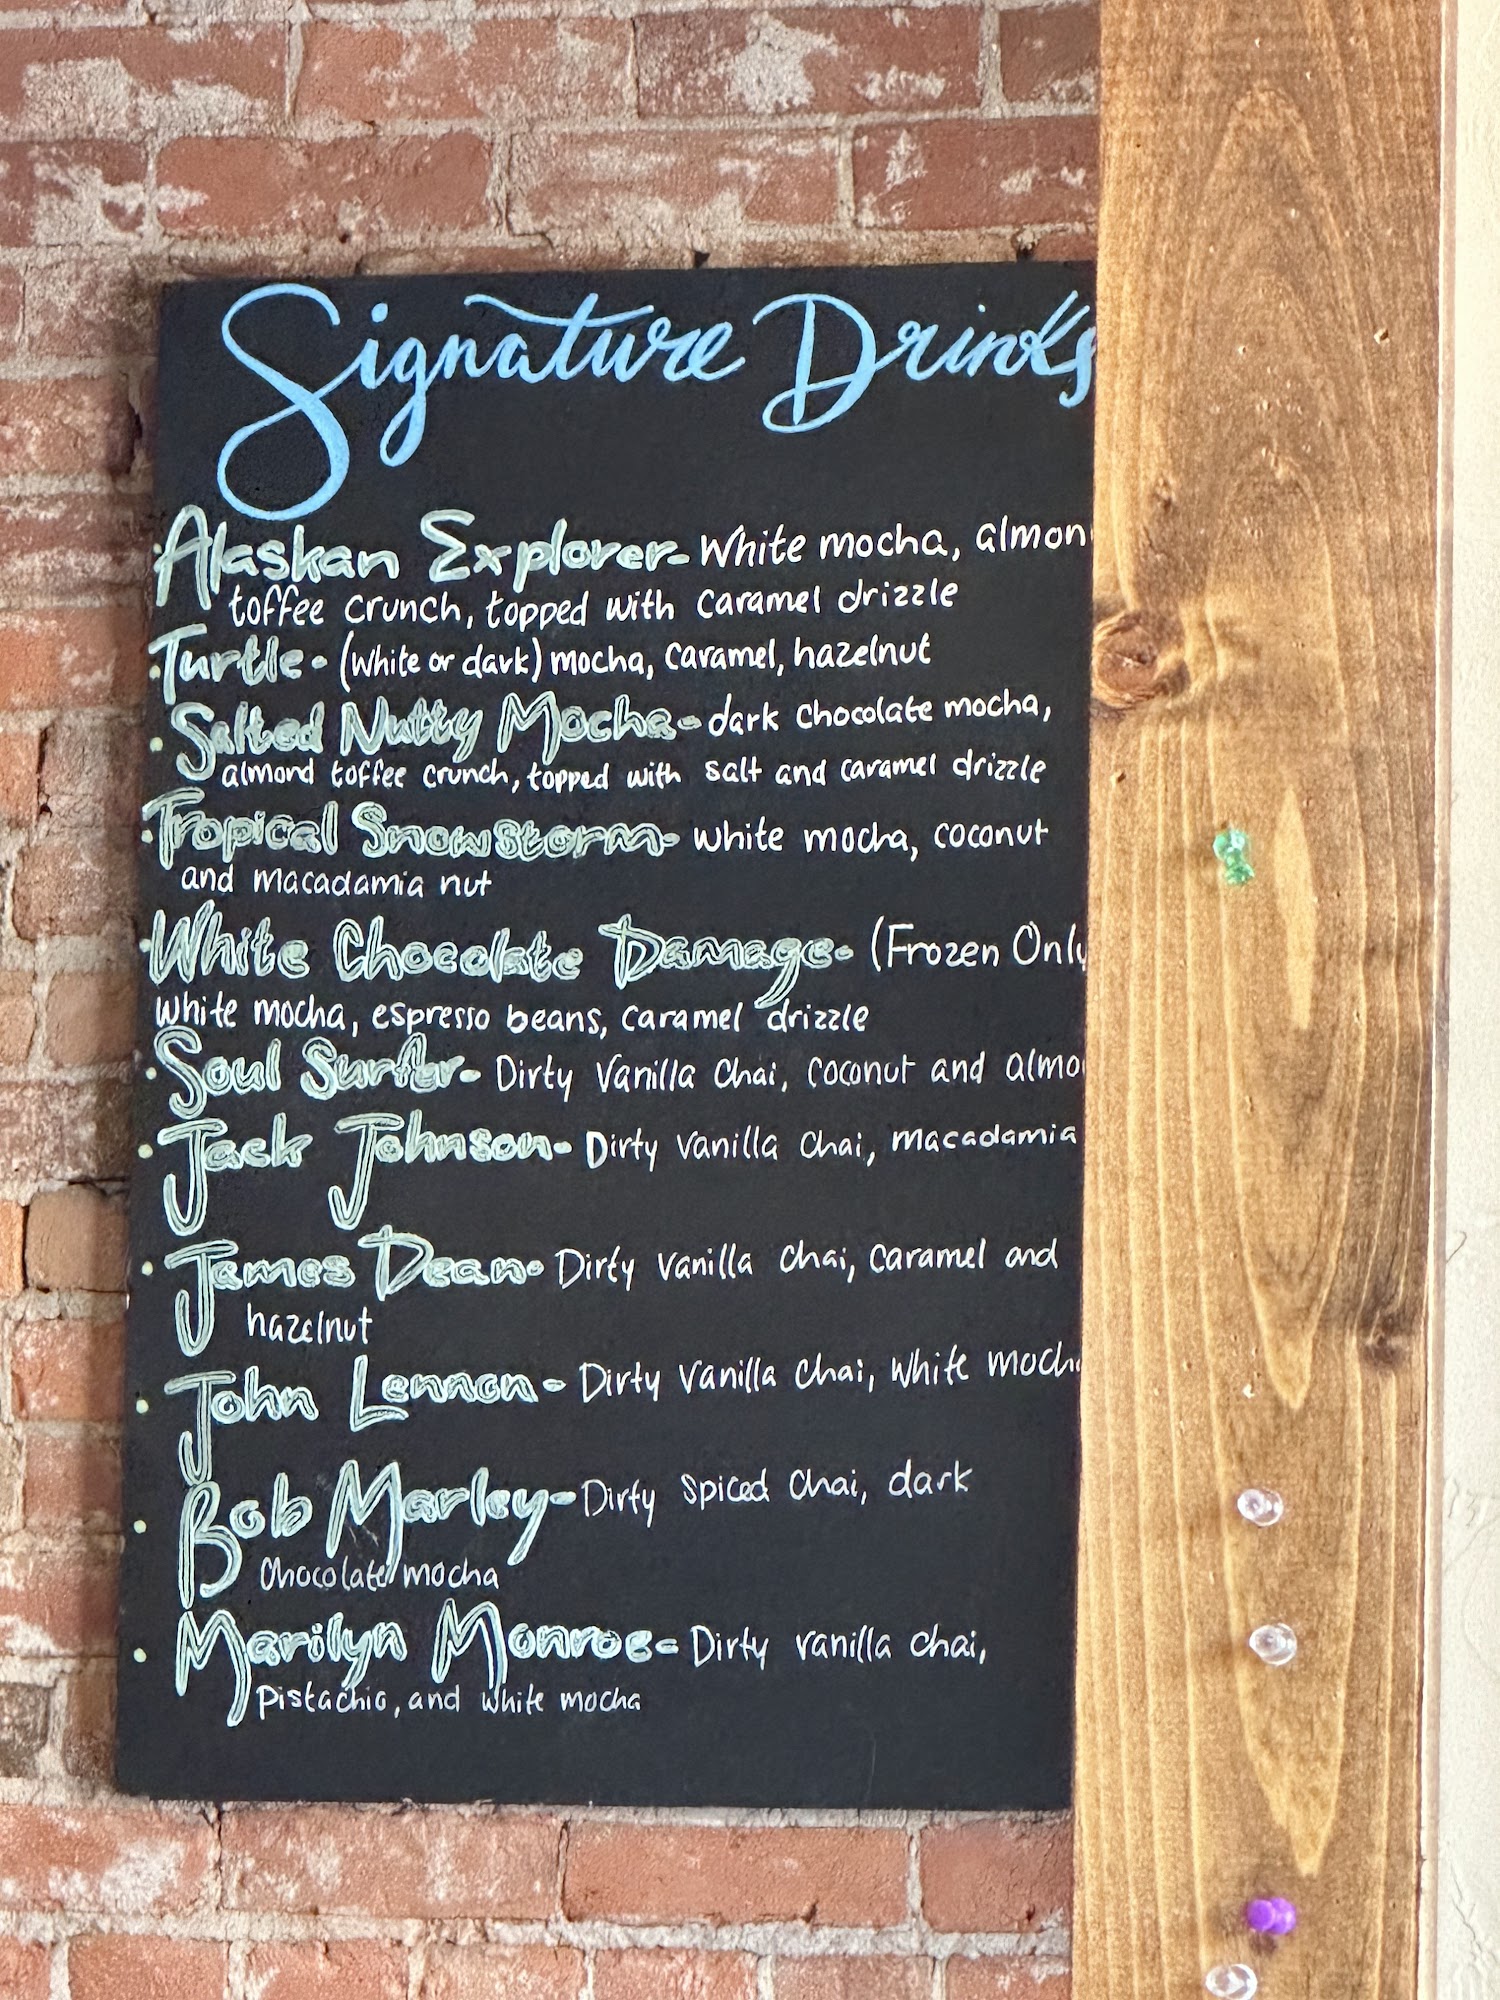 Signature Drinks
Alaskan Explorer- White mocha, almon
toffee crunch, topped with caramel drizzle
Turtle- (White or dark) mocha, caramel, hazelnut
Salted Nutty Mocha- dark chocolate mocha,
almond toffee crunch, topped with salt and caramel drizzle
Tropical Snowstorm- white mocha, coconut
and macadamia nut
White Chocolate Damage- (Frozen Only
white mocha, espresso beans, caramel drizzle
Soul Surfer- Dirty Vanilla Chai, coconut and almo
Jack Johnson- Dirty Vanilla Chai, macadamia
James Dean- Dirty Vanilla Chai, caramel and
hazelnut
John Lennon- Dirty Vanilla Chai, White mocha
Bob Marley- Dirty Spiced Chai, dark
Chocolate mocha
Marilyn Monroe- Dirty Vanilla Chai,
Pistachio, and white mocha